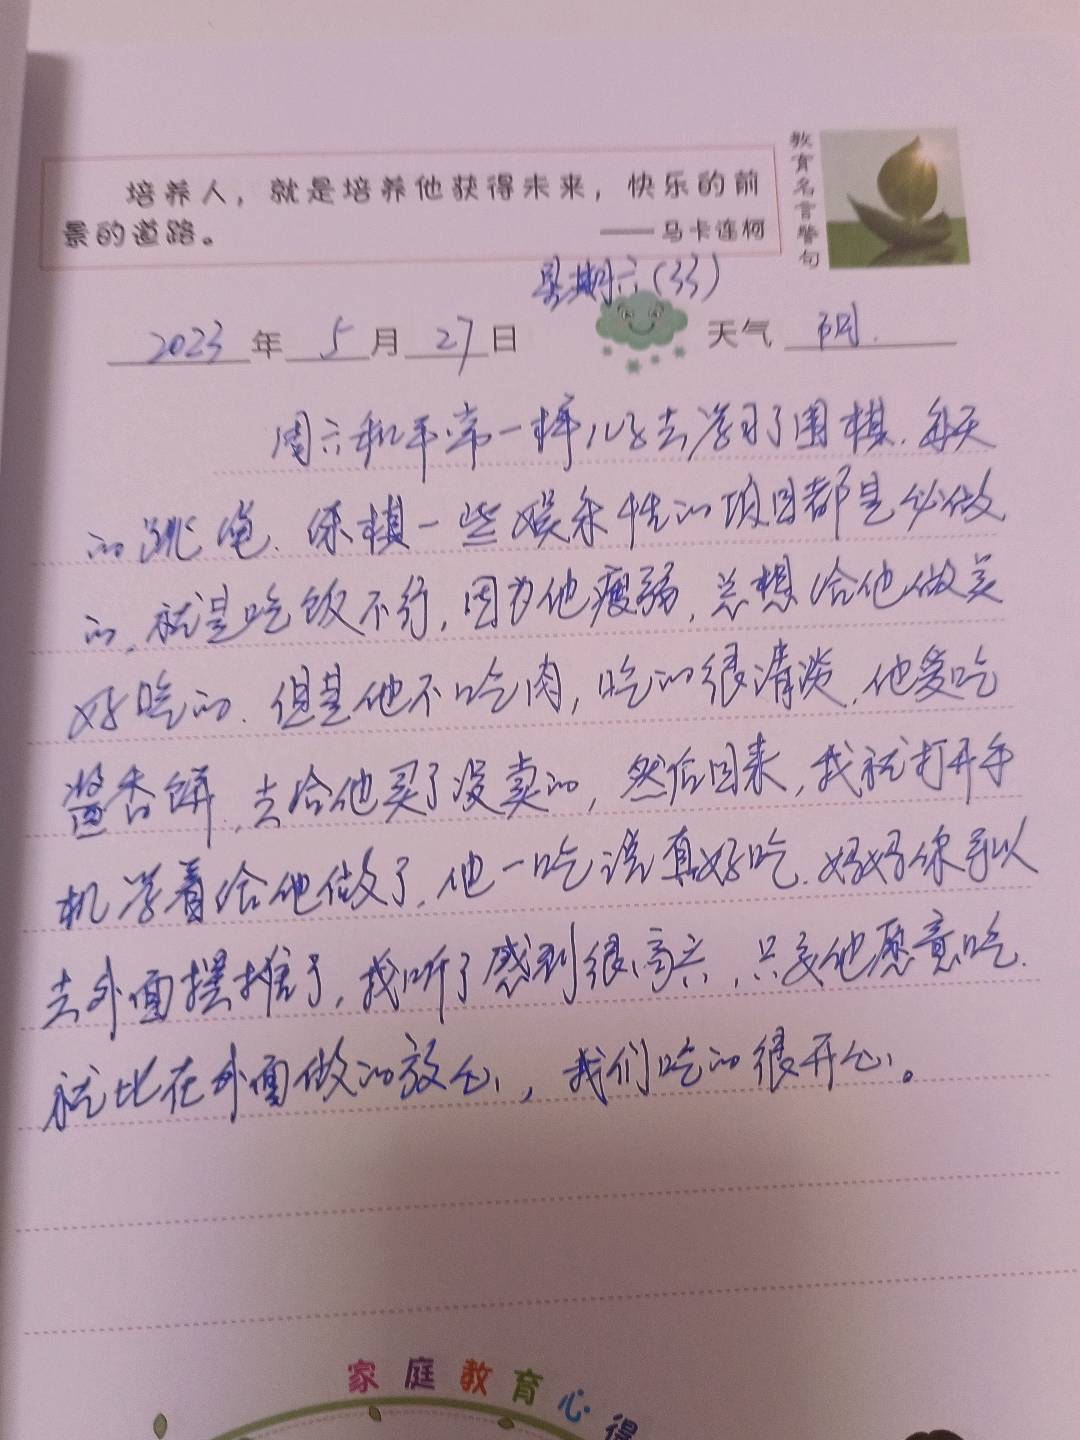 培养人，就是培养他获得未来，快乐的前
景的道路。
——马卡连柯
教育名言警句
星期六(33)
2023年5月27日 天气 阴.
周六和平常一样儿子去学习了围棋.每天
的跳绳.保模一些娱乐性的项目都是必做
的,就是吃饭不行,因为他瘦弱,总想给他做美
好吃的.但是他不吃肉,吃的很清淡,他爱吃
酱香饼,去给他买了没卖的,然后回来,我就打开手
机学着给他做了,他一吃说真好吃.妈妈你可以
去外面摆摊了,我听了感到很高兴,只要他愿意吃.
就比在外面做的放心,我们吃的很开心。
家庭教育心得